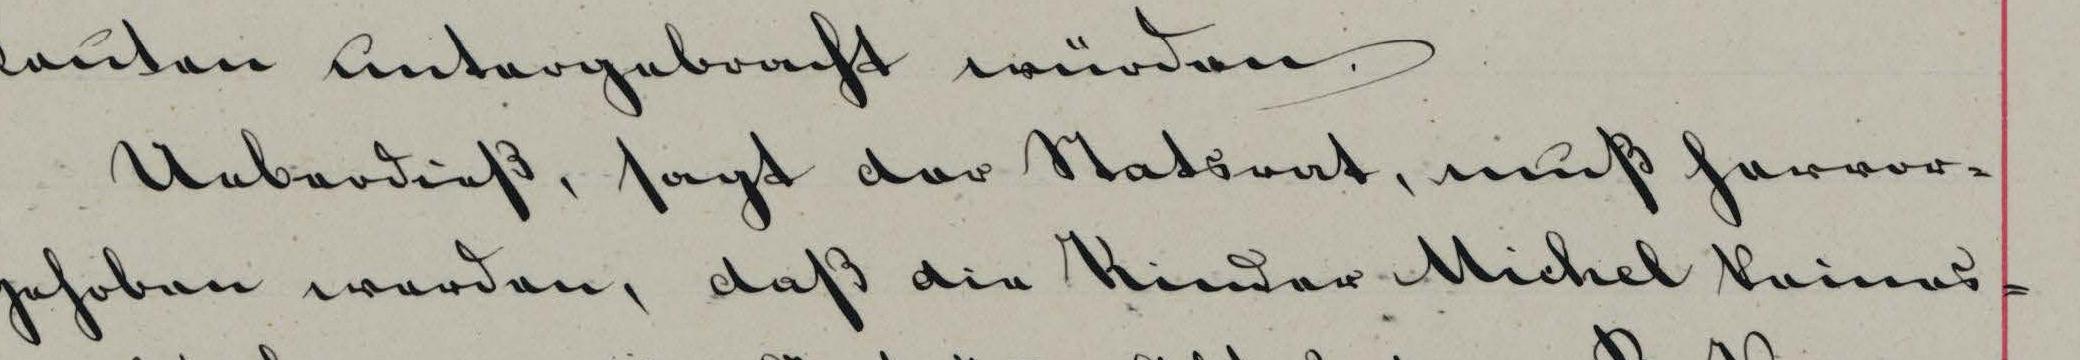 Leuten untergebracht würden.
Ueberdieß, sagt der Statsrat, muß hervor-
gehoben werden, daß die Kinder Michel keines-